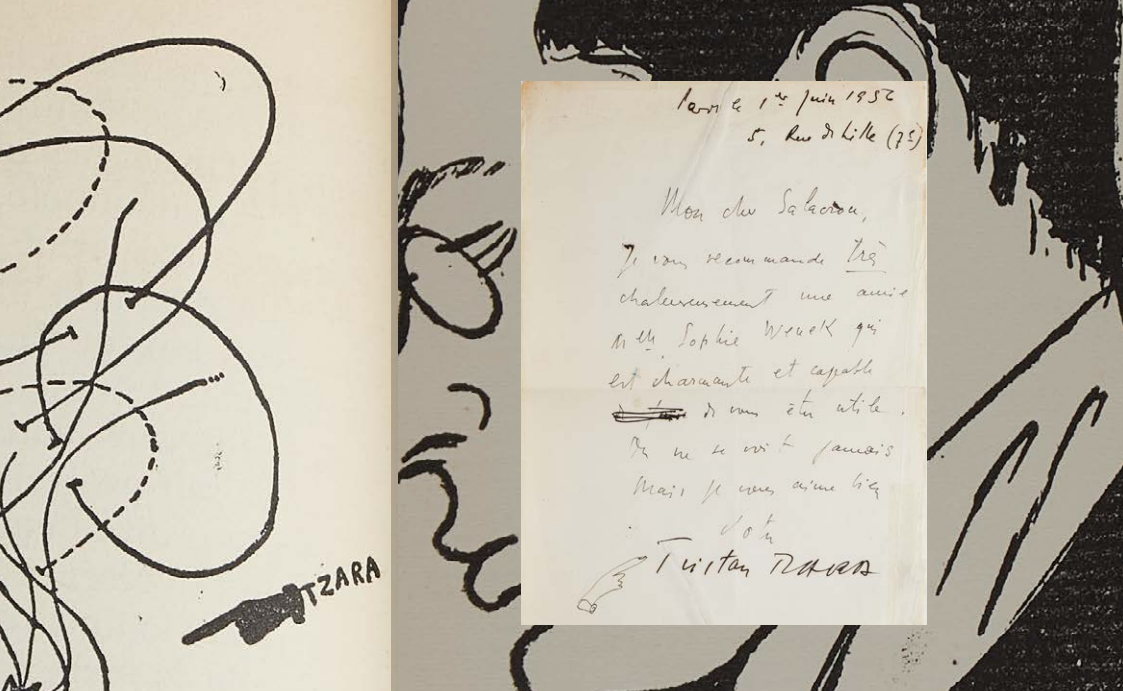 TZARA
Paris le 1er Juin 1956
5, Rue de Lille (7e)
Mon cher Salacrou,
Je vous recommande très
chaleureusement une amie
Mlle Sophie Wenek qui
est charmante et capable
de vous être utile.
On ne se voit jamais
Mais je vous aime bien
Tristan TZARA